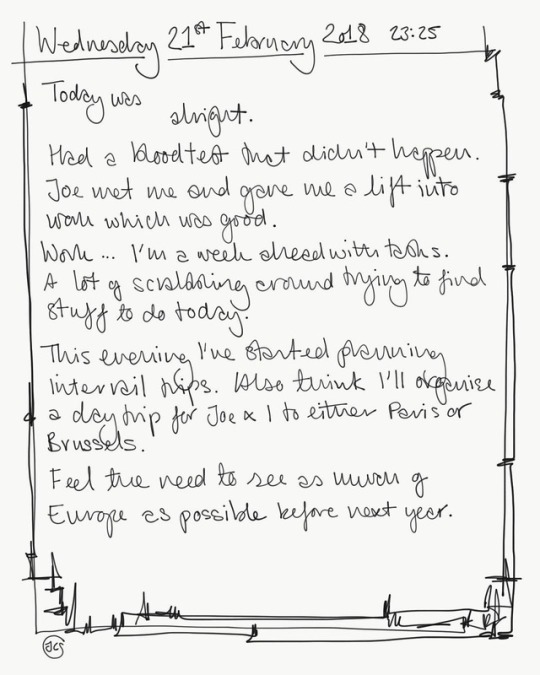 Wednesday 21st February 2018 23:25
Today was
alright.
Had a bloodtest that didn't happen.
Joe met me and gave me a lift into
work which was good.
Work... I'm a week ahead with tasks.
A lot of scrabbling around trying to find
stuff to do today.
This evening I've started planning
interrail trips. Also think I'll organise
a day trip for Joe & I to either Paris or
Brussels.
Feel the need to see as much of
Europe as possible before next year.
JCS